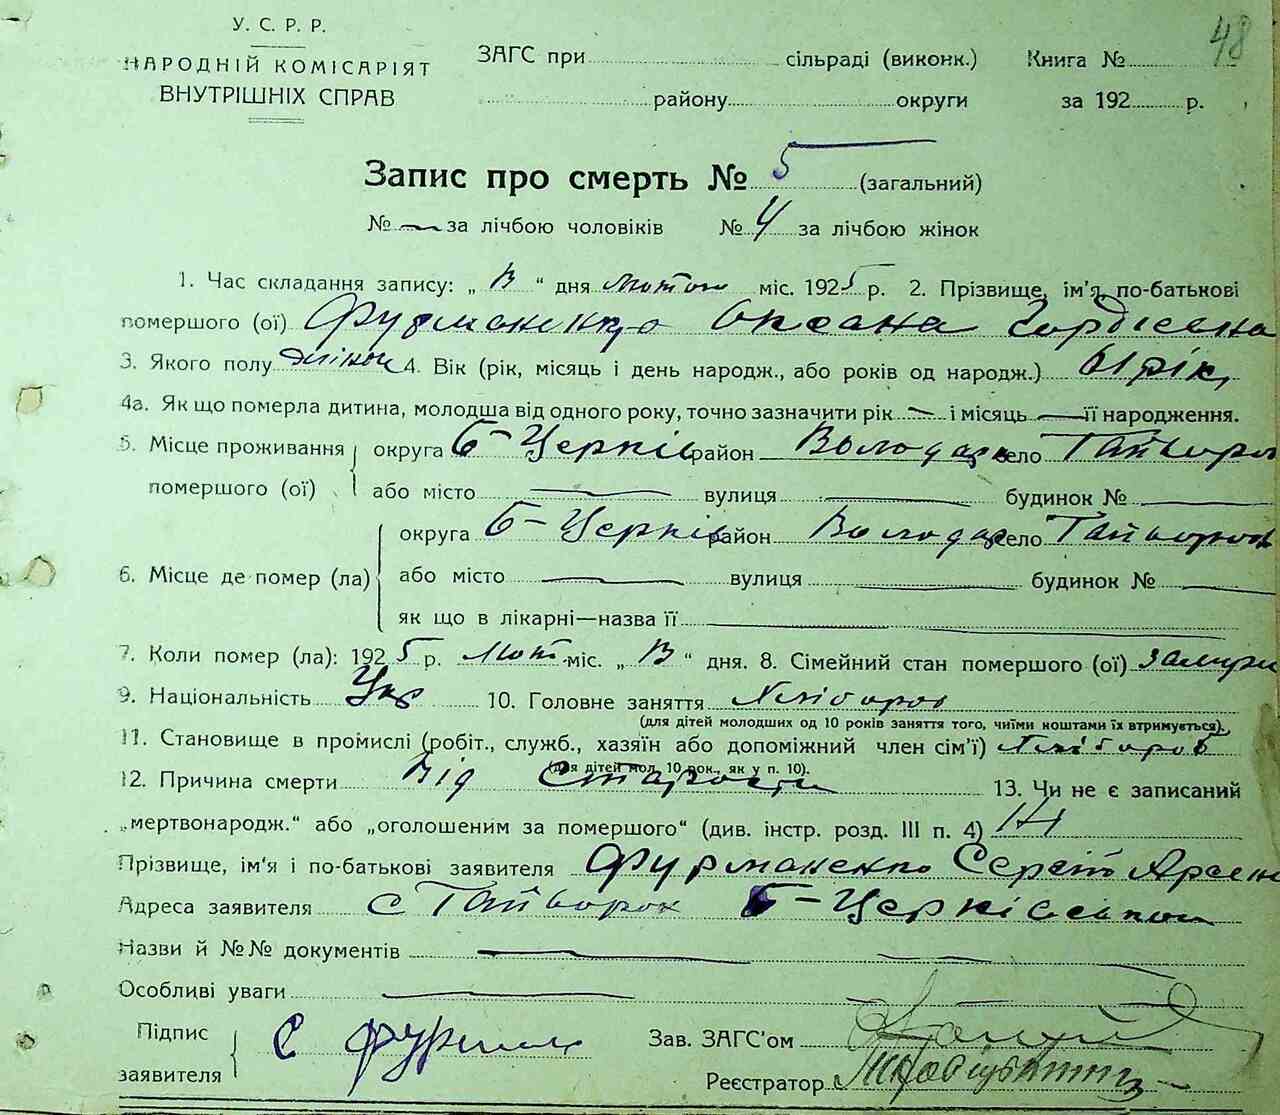 48
У. С. Р. Р.
НАРОДНІЙ КОМІСАРІЯТ
ВНУТРІШНІХ СПРАВ
ЗАГС при сільраді (виконк.) Книга №
району округи за 192 р.
Запис про смерть № 5 (загальний)
№ — за лічбою чоловіків № 4 за лічбою жінок
1. Час складання запису: „ “ дня лютого міс. 1925 р. 2. Прізвище, ім'я, по-батькові
помершого (ої) Фурманенко Оксана Гордіевна
3. Якого полу жіноч 4. Вік (рік, місяць і день народж., або років од народж.) 61 рік
4а. Як що померла дитина, молодша від одного року, точно зазначити рік — і місяць — її народження.
5. Місце проживання помершого (ої) округа Б-Церків район Володар село Тайворок
або місто — вулиця — будинок № —
6. Місце де помер (ла) округа Б-Церків район Володар село Тайворок
або місто — вулиця — будинок № —
як що в лікарні—назва її —
7. Коли помер (ла): 1925 р. Лют. міс. „ “ дня. 8. Сімейний стан помершого (ої) замужн
9. Національність Укр 10. Головне заняття Хлібороб
(для дітей молодших од 10 років заняття того, чиїми коштами їх втримується).
11. Становище в промислі (робіт., служб., хазяїн або допоміжний член сім'ї) Хлібороб
(для дітей мол. 10 рок., як у п. 10).
12. Причина смерти Від Старости 13. Чи не є записаний
„мертвонародж.“ або „оголошеним за помершого“ (див. інстр. розд. III п. 4) Ні
Прізвище, ім'я і по-батькові заявителя Фурманенко Сергій Арсен
Адреса заявителя с Тайворок Б-Церківської
Назви й №№ документів —
Особливі уваги —
Підпис заявителя С Фурман
Зав. ЗАГС'ом
Реєстратор